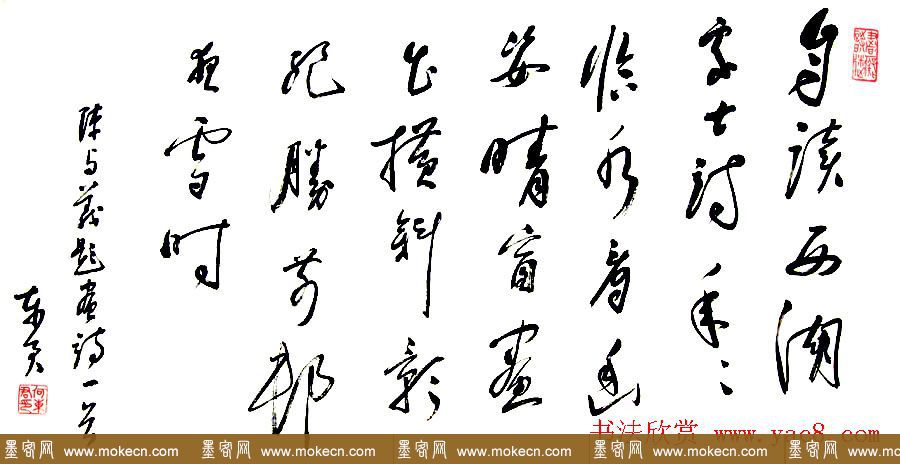 自讀西湖
處士詩年〻
临水看幽
姿晴窗畫
出横斜影
絕勝前邨
夜雪时
陈与義題畫詩一首
书法欣赏 www.yac8.com
墨客网 www.mokecn.com 墨客网 www.mokecn.com 墨客网 www.mokecn.com 墨客网 www.mokecn.com 墨客网 www.mokecn.com